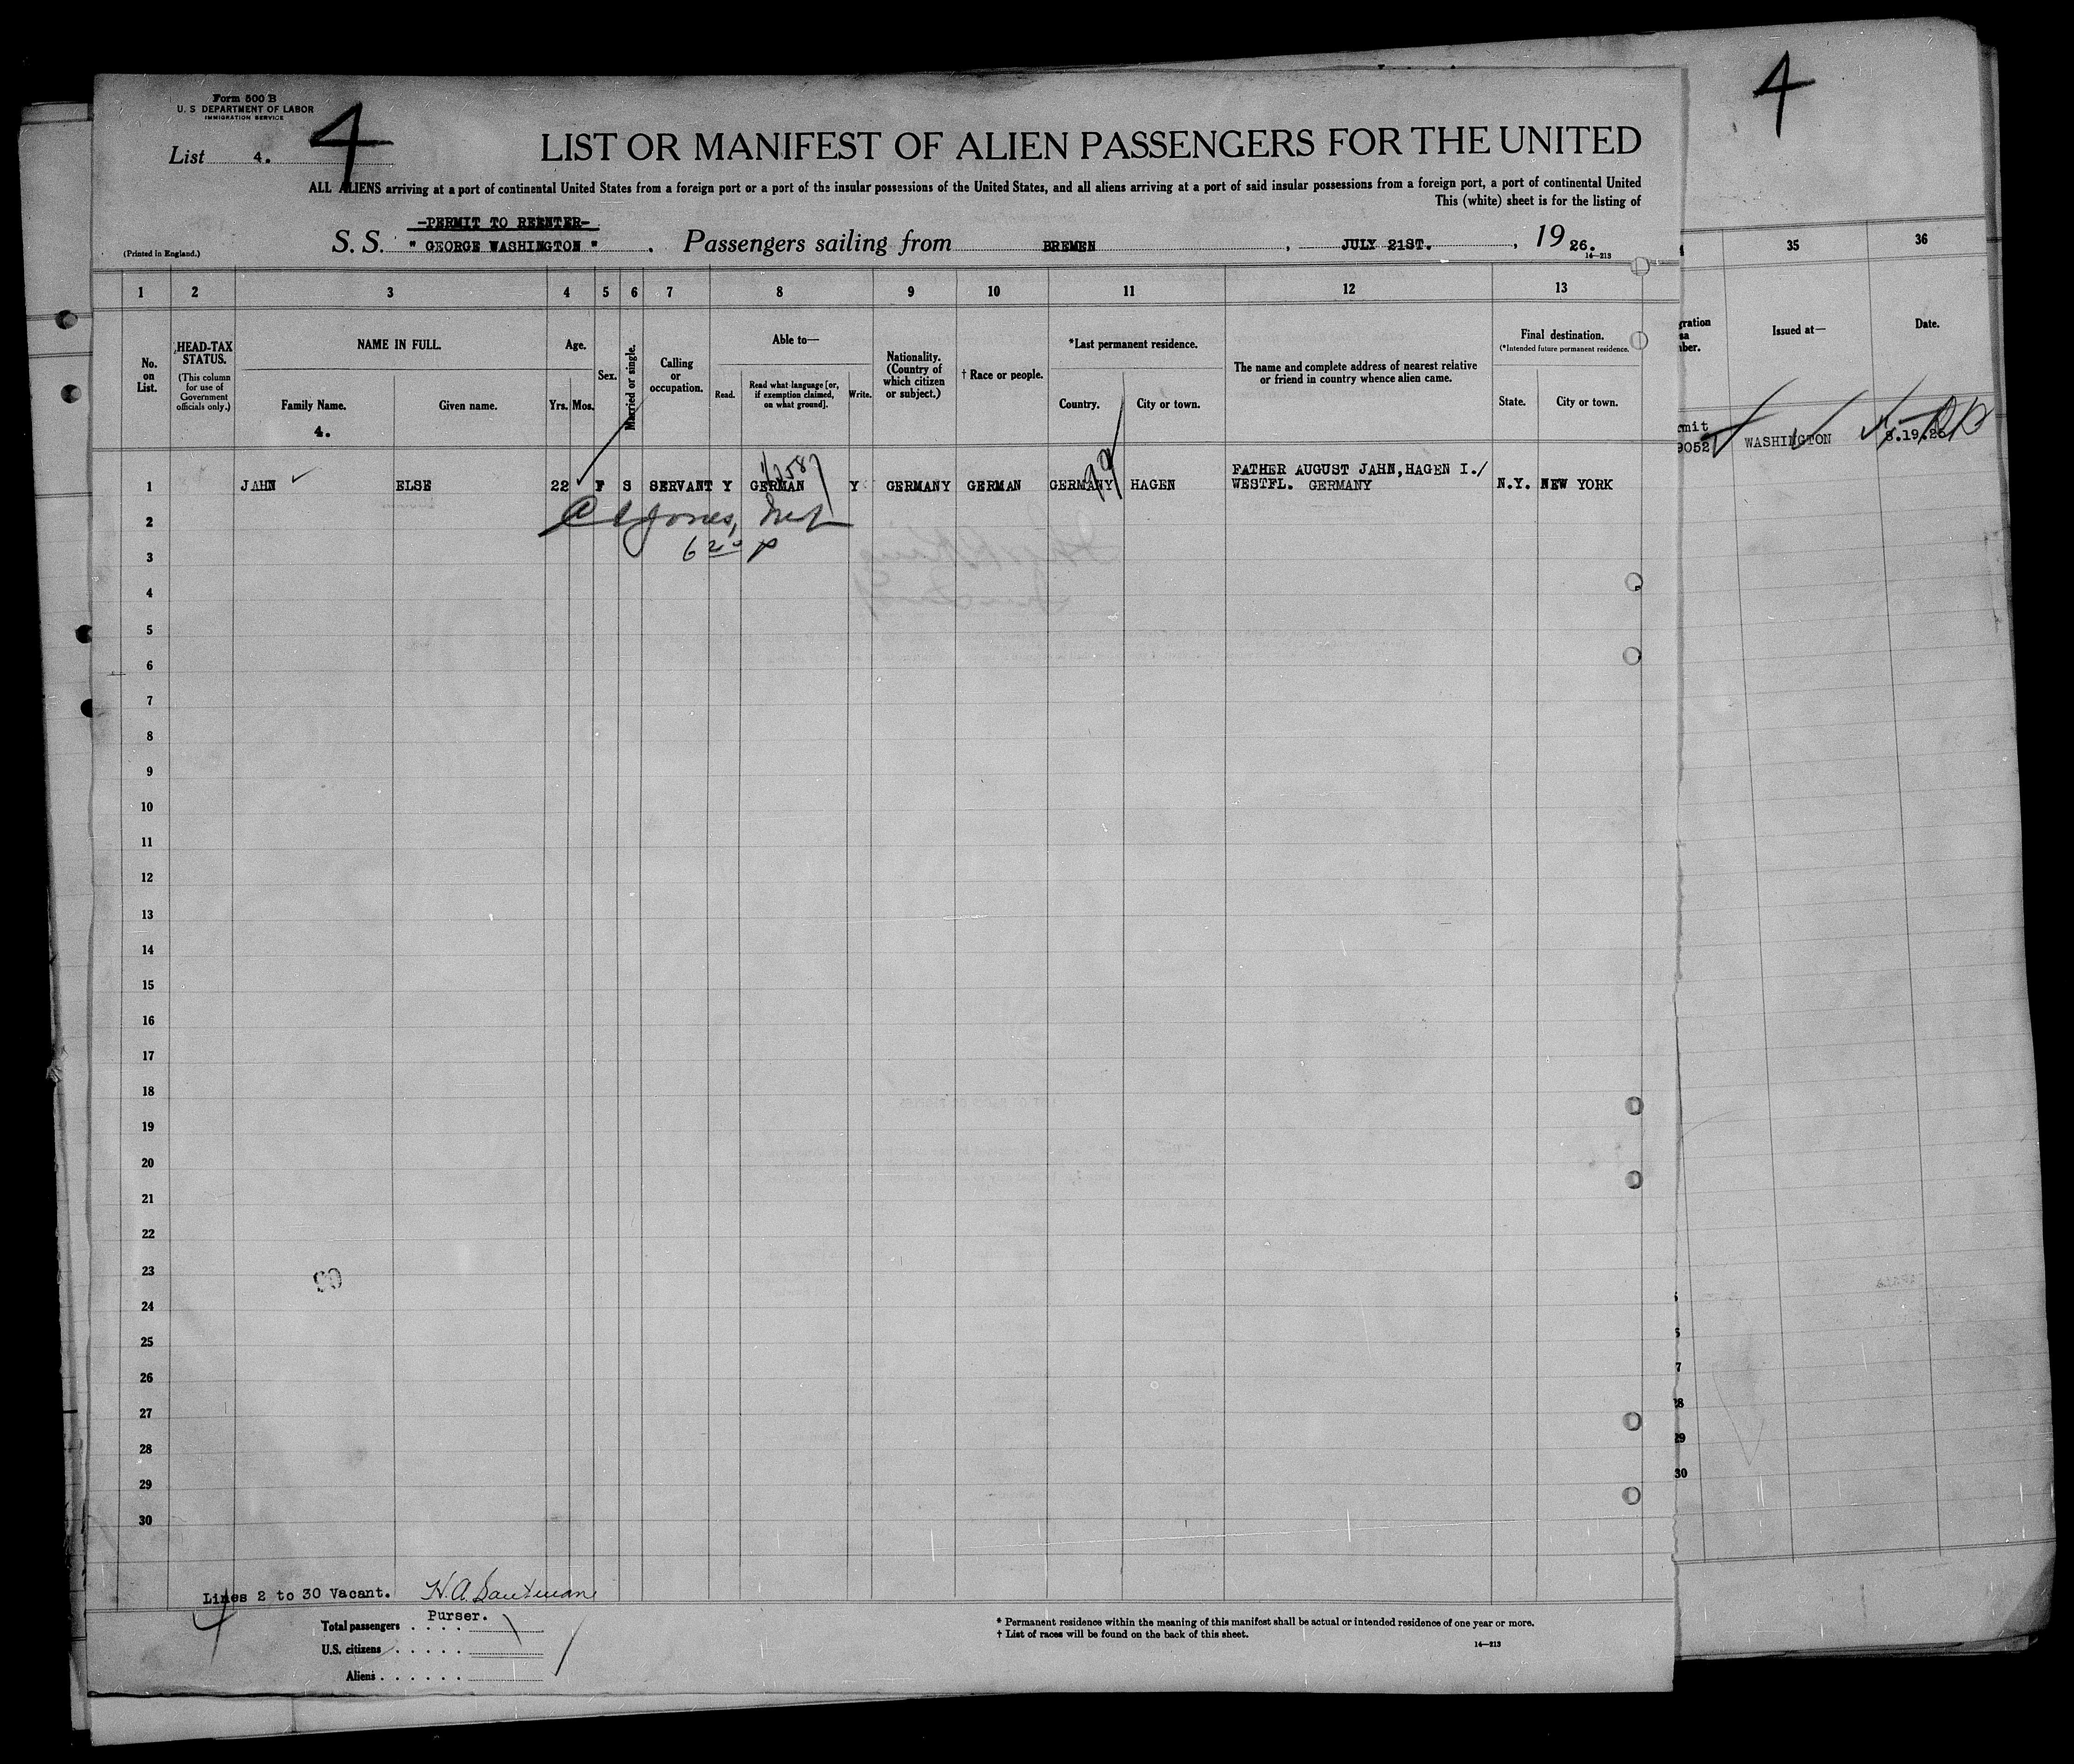 Form 500 B
U. S DEPARTMENT OF LABOR
IMMIGRATION SERVICE
List 4.
4
4
LIST OR MANIFEST OF ALIEN PASSENGERS FOR THE UNITED
ALL ALIENS arriving at a port of continental United States from a foreign port or a port of the insular possessions of the United States, and all aliens arriving at a port of said insular possessions from a foreign port, a port of continental United
This (white) sheet is for the listing of
-PERMIT TO REENTER-
(Printed in England.)
S. S. " GEORGE WASHINGTON " . Passengers sailing from BREMEN , JULY 21ST. , 19 26.
14—213
1 2 3 4 5 6 7 8 9 10 11 12 13 35 36
No. on List.
HEAD-TAX STATUS.
(This column for use of Government officials only.)
NAME IN FULL.
Family Name.
Given name.
4.
Age.
Yrs. Mos.
Sex.
Married or single.
Calling or occupation.
Able to—
Read.
Read what language [or, if exemption claimed, on what ground].
Write.
Nationality. (Country of which citizen or subject.)
† Race or people.
*Last permanent residence.
Country.
City or town.
The name and complete address of nearest relative or friend in country whence alien came.
Final destination.
(*Intended future permanent residence.
State.
City or town.
gration
sa
ber.
Issued at—
Date.
mit
9052
WASHINGTON
8.19.26
1 JAHN ELSE 22 F S SERVANT Y GERMAN Y GERMANY GERMAN GERMANY HAGEN FATHER AUGUST JAHN,HAGEN I./ WESTFL. GERMANY N.Y. NEW YORK
2
3
4
5
6
7
8
9
10
11
12
13
14
15
16
17
18
19
20
21
22
23
24
25
26
27
28
29
30
7
28
29
30
Lines 2 to 30 Vacant.
Purser.
Total passengers . . . .
U.S. citizens . . . . .
Aliens . . . . . .
* Permanent residence within the meaning of this manifest shall be actual or intended residence of one year or more.
† List of races will be found on the back of this sheet.
14—213